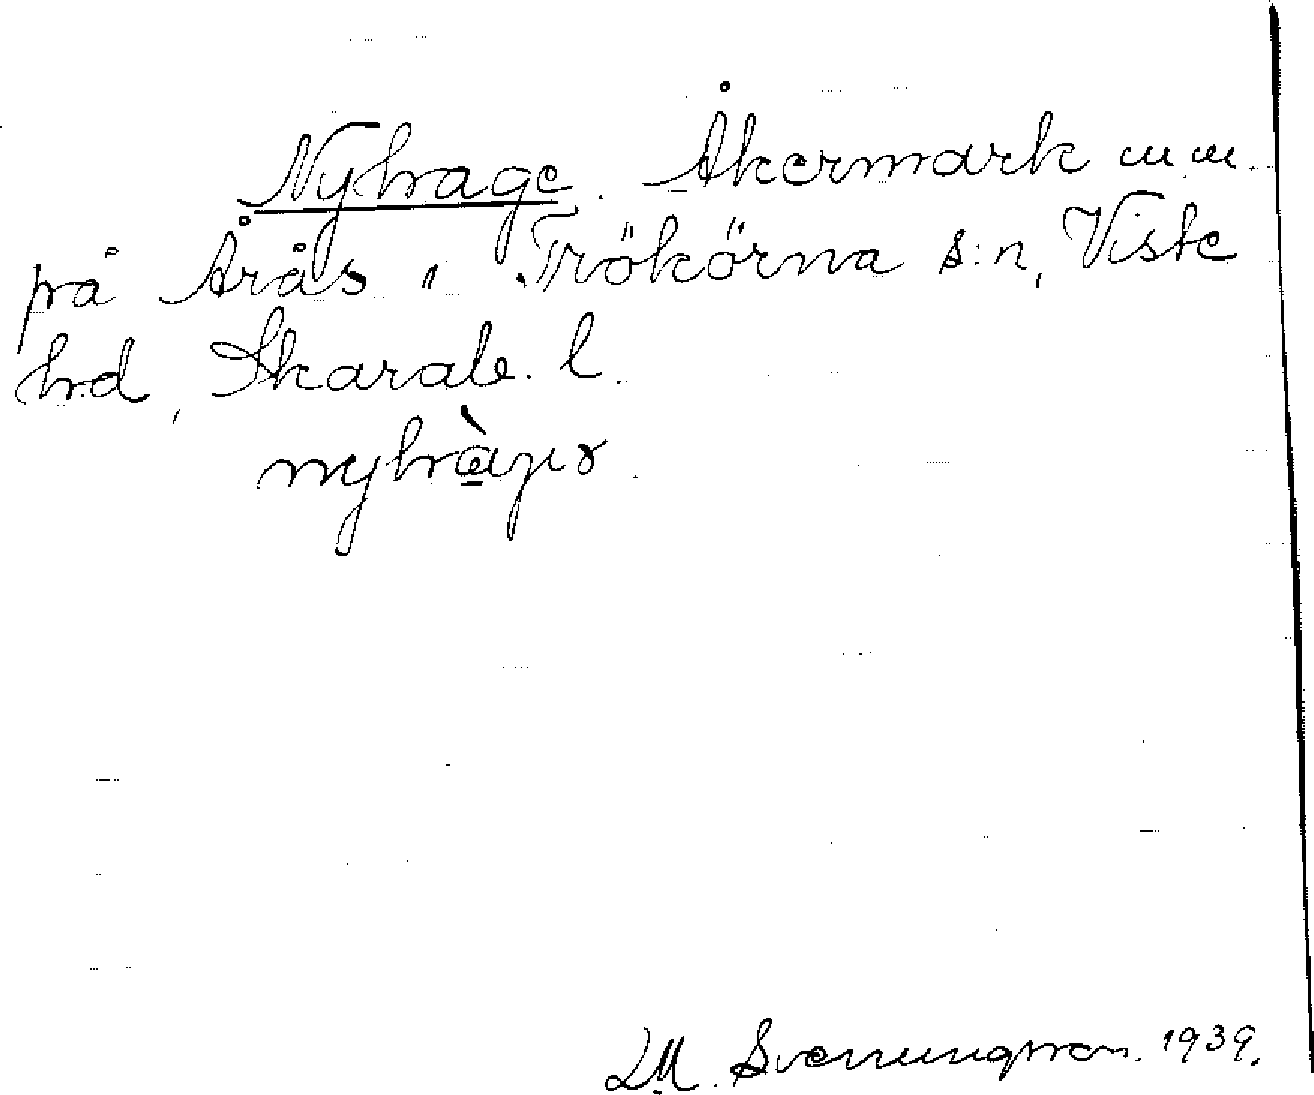 Nyhage. Åkermark m.m.
på Årås i Trökörna s:n, Viste
hd, Skarab. l.
nyhàgɩɤ.
LM. Svenungsson. 1939.